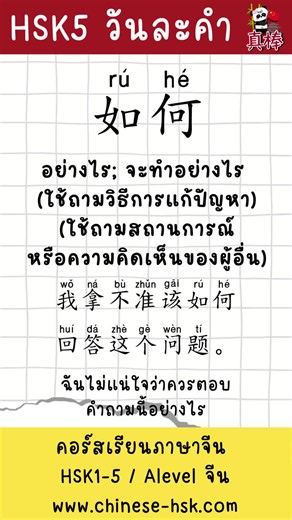 HSK5 วันละคำ
真棒
rú hé
如何
อย่างไร; จะทำอย่างไร
(ใช้ถามวิธีการแก้ปัญหา)
(ใช้ถามสถานการณ์
หรือความคิดเห็นของผู้อื่น)
wǒ ná bù zhǔn gāi rú hé
我拿不准该如何
huí dá zhè gè wèn tí
回答这个问题。
ฉันไม่แน่ใจว่าควรตอบ
คำถามนี้อย่างไร
คอร์สเรียนภาษาจีน
HSK1-5 / Alevel จีน
www.chinese-hsk.com